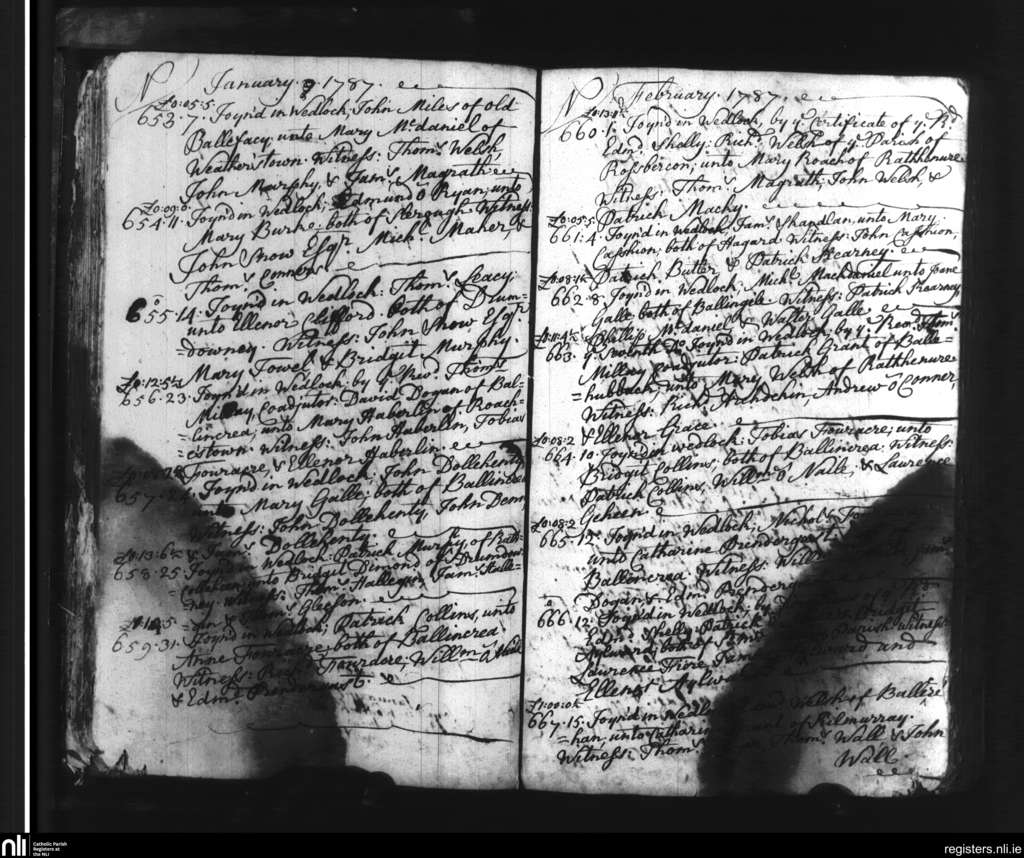 N January 1787.
£0:05:5
653.7. Joyn'd in Wedlock, John Miles of old-
Ballefacy unto Mary McDaniel of
Weatherstown. Witness: Thoms. Welsh,
John Murphy, & Jams. Magrath
£0:09:0
654.11. Joyn'd in Wedlock; Edmund Ryan; unto
Mary Burke: both of Witness:
John Snow Esqr. Michl. Maher, &
Thoms. Connors
655.14. Joyn'd in Wedlock: Thoms. Leacy
unto Ellenor Clifford both of Drum=
=downey. Witness: John Snow Esqr.
Mary Towel & Bridgit Murphy.
£0:12:5½
656.23. Joyn'd in Wedlock: by ye Revd. Thoms.
Millvey, Coadjutor: David Dogan of Bal-
=lincrea; unto Mary Haberlin of Roach-
=estown: Witness: John Haberlin, Tobias
Fouracre, & Ellenor Haberlin.
657. Joyn'd in Wedlock: John Dollehenty
unto Mary Galle: both of Ballindea
Witness: John Dollehenty, John
& Jams. Dollehenty
£0:13:6½
658.25 Joyn'd in Wedlock: Patrick Murphy of Rath-
unto Bridgit Dimond of Drumdow
ney Witness: Thoms. Jams.
& Gleeson.
659.31. Joyn'd in Wedlock; Patrick Collins, unto
Anne Fouracre, both of Ballincrea
Witness: Fouracre, Willm.
& Edmd. Prendergust.
N February 1787.
660.1. Joyn'd in Wedlock, by ye Certificate of ye Rd
Edmd. Shelly: Richd. Welsh of ye Parish of
Rosbercon; unto Mary Roach of Rathkenure
Witness: Thoms. Magrath; John Welsh, &
Patrick Macky.
£0:05:5
661:4. Joyn'd in Wedlock Jams. Shandlan, unto Mary
Casshion, both of Hagard Witness: John Casshion,
Patrick Butler & Patrick Kearney.
662.8. Joyn'd in Wedlock; Michl. Mackdaniel unto Joone
Galle both of Ballingele Witness: Patrick Kearney
Phillip McDaniel & Walter Galle
£0:11:4½
663. ye Seventh Do. Joyn'd in Wedlock, by ye Revd. Thoms.
Millvey Coadjutor: Patrick Grant of Balle-
=hubback; unto Mary Welsh of Rathkenure
Witness: Richd. Archdekin, Andrew O Conner,
& Ellenor Grace
£0:08:2
664.10. Joyn'd in wedlock: Tobias Fouracre; unto
Bridgit Collins, both of Ballincrea: Witness
Patrick Collins, Willm. O Nalle; & Laurence
Geheen
£0:08:2
665.12. Joyn'd in Wedlock; Nichols.
unto Catharine Prindergust
Ballincrea Witness: Willm.
Dogan & Edmd.
666.12: Joyn'd in Wedlock; by
Edmd. Shelly Patrick Bridgit
Aylward; both of Parish: Witness
Laurence and
Ellenor Aylward
£1:00:0½
667.15: Joyn'd in Wedlock and Welsh of Ballere
=han unto Catharine of Kilmurray.
Witness: Thoms. Thoms. Wall & John
Wall
nli
Catholic Parish
Registers at
the NLI
registers.nli.ie